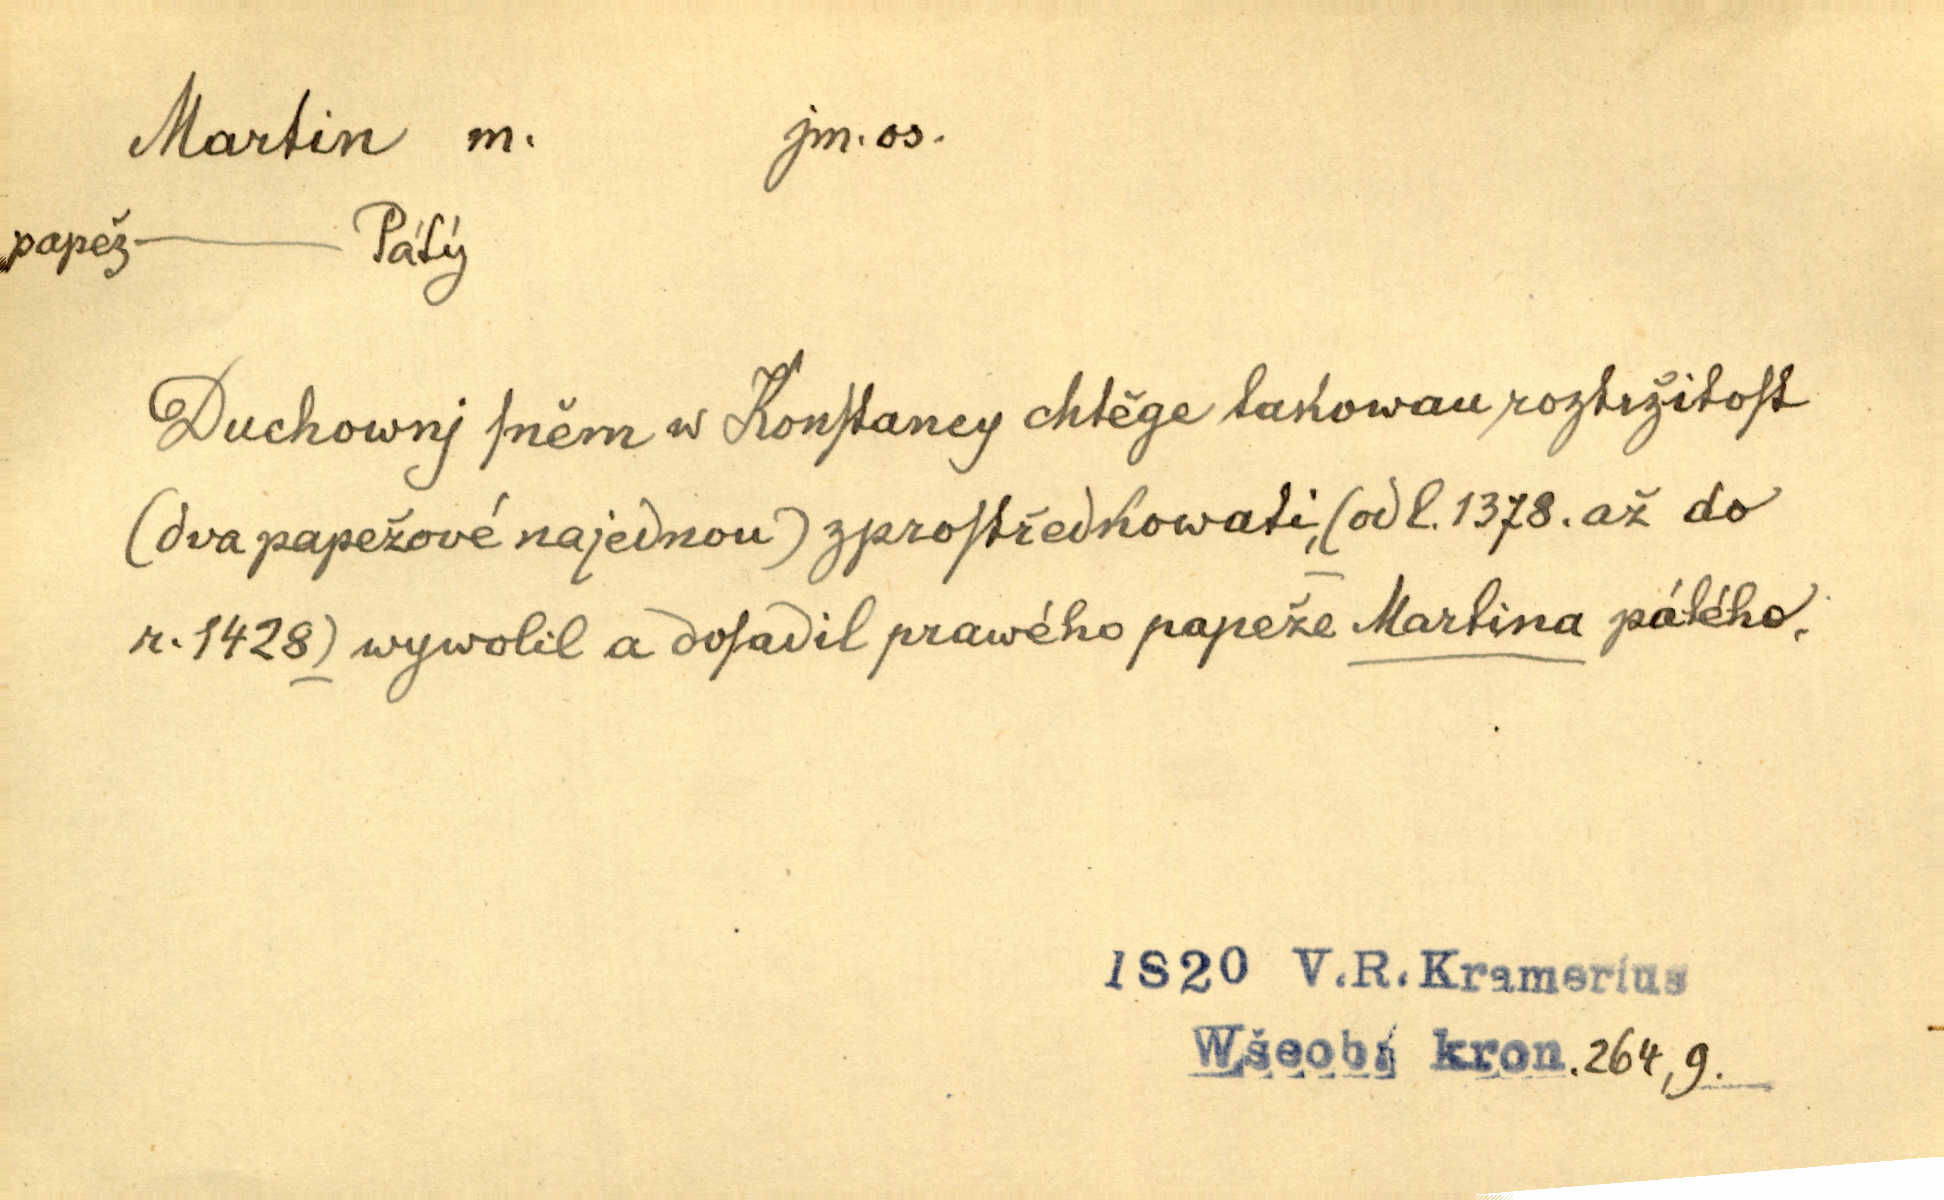 Martin m. jm. os.
papež — Pátý
Duchownj ſněm w Konſtancy chtěge takowau roztržitoſt
(dva papežové najednou) zproſtředkowati, (od l. 1378. až do
r. 1428) wywolil a doſadil prawého papeže Martina pátého.
1820 V.R.Kramerius
Wšeob. kron. 264,9.